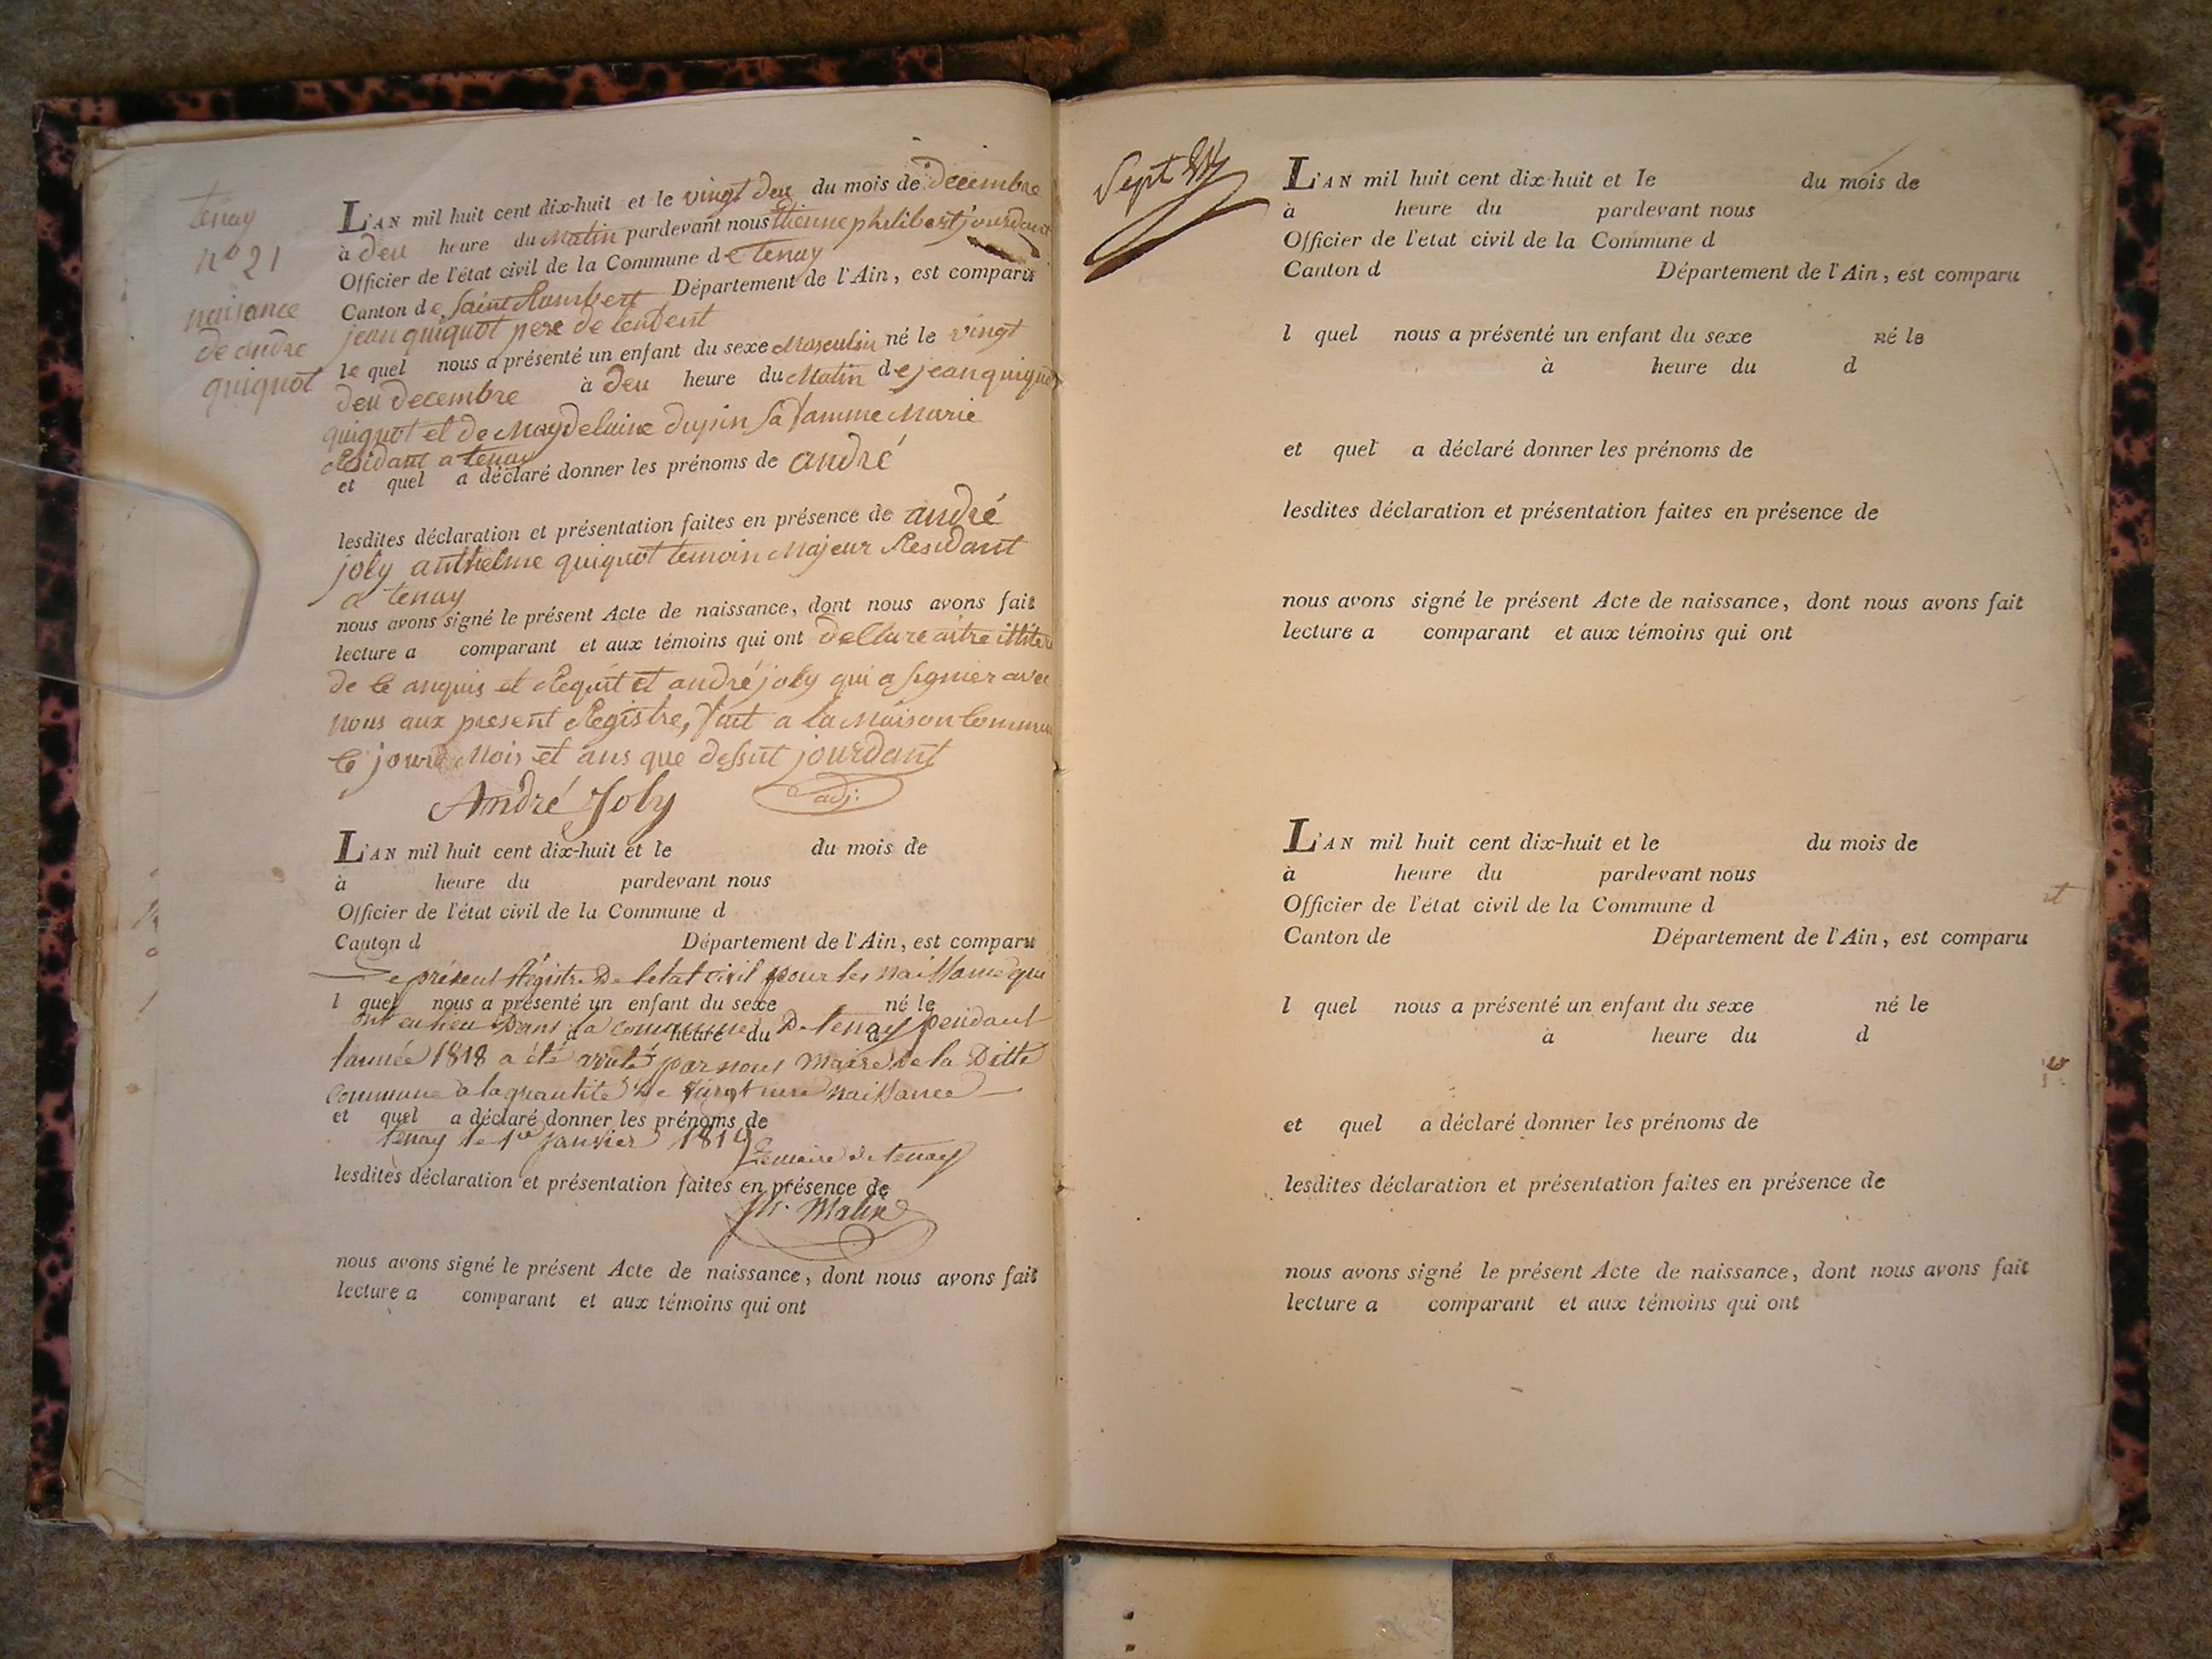 tenay
nº 21
naisance
de andre
quiquot
L'AN mil huit cent dix-huit et le vingt deu du mois de decembre
à deu heure du Matin pardevant nous Etienne philibert jourdant
Officier de l'état civil de la Commune de tenay
Canton de Saint Rambert Département de l'Ain, est comparu
jean quiquot pere de lendent
le quel nous a présenté un enfant du sexe Masculin né le vingt
deu decembre à deu heure du Matin de jean quiquot
quiquot et de Magdelaine dupin sa famme Marie
Residant a tenay
et quel a déclaré donner les prénoms de andré
lesdites déclaration et présentation faites en présence de andré
joly anthelme quiquot temoin Majeur Residant
a tenay
nous avons signé le présent Acte de naissance, dont nous avons fait
lecture a comparant et aux témoins qui ont declare aitre illiteré
de ce anquis et Requit et andré joly qui a signier avec
nous aux present Registre, fait a la Maison Commune
le jour Mois et ans que dessut jourdant
André Joly adj.
L'AN mil huit cent dix-huit et le du mois de
à heure du pardevant nous
Officier de l'état civil de la Commune d
Canton d Département de l'Ain, est comparu
Le présent Régistre De letat civil pour les naissance qui
l quel nous a présenté un enfant du sexe né le
ont eu lieu Dans la commune De tenay pendant
à heure du d
l'année 1818 a été arreté par nous Maire de la Ditte
Commune a la quantité De vingt une naissance
et quel a déclaré donner les prénoms de
tenay le 1er janvier 1819 Le maire de tenay
lesdites déclaration et présentation faites en présence de
nous avons signé le présent Acte de naissance, dont nous avons fait
lecture a comparant et aux témoins qui ont
Sept
L'AN mil huit cent dix-huit et le du mois de
à heure du pardevant nous
Officier de l'etat civil de la Commune d
Canton d Département de l'Ain, est comparu
l quel nous a présenté un enfant du sexe né le
à heure du d
et quel a déclaré donner les prénoms de
lesdites déclaration et présentation faites en présence de
nous avons signé le présent Acte de naissance, dont nous avons fait
lecture a comparant et aux témoins qui ont
L'AN mil huit cent dix-huit et le du mois de
à heure du pardevant nous
Officier de l'état civil de la Commune d
Canton de Département de l'Ain, est comparu
l quel nous a présenté un enfant du sexe né le
à heure du d
et quel a déclaré donner les prénoms de
lesdites déclaration et présentation faites en présence de
nous avons signé le présent Acte de naissance, dont nous avons fait
lecture a comparant et aux témoins qui ont